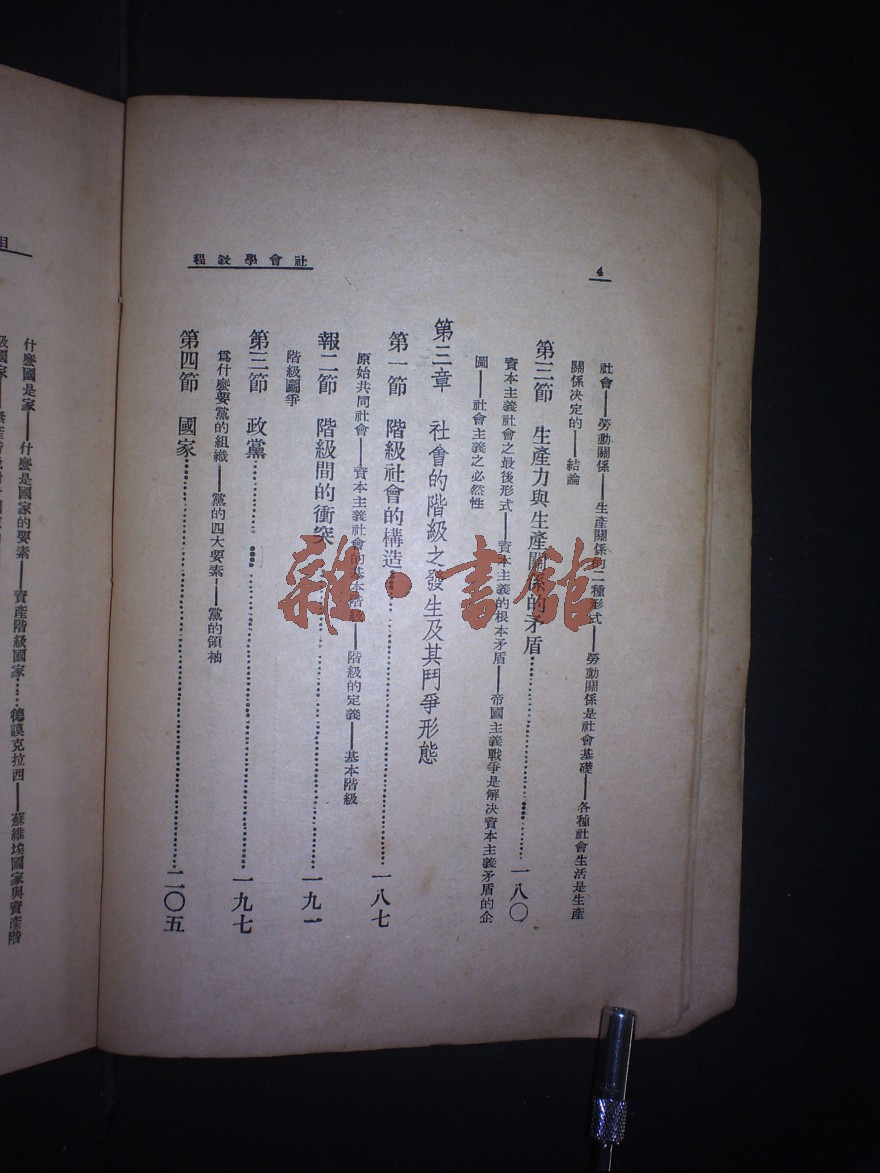 4
社會學設程
社會——勞動關係——生產關係的二種形式——勞動關係是社會基礎——各種社會生活是生產
關係決定的——結論
第三節 生產力與生產關係的矛盾……一八〇
資本主義社會之最後形式——資本主義的根本矛盾——帝國主義戰爭是解决資本主義矛盾的企
圖——社會主義之必然性
第三章 社會的階級之發生及其鬥爭形態
第一節 階級社會的構造……一八七
原始共同社會——資本主義社會的基本階級——階級的定義——基本階級
報二節 階級間的衝突……一九一
階級鬬爭
第三節 政黨……一九七
爲什麽要黨的組織——黨的四大要素——黨的領袖
第四節 國家……二〇五
什麽國是家——什麽是國家的要素——資產階級國家……德謨克拉西——蘇維埃國家與資產階
雜·書館